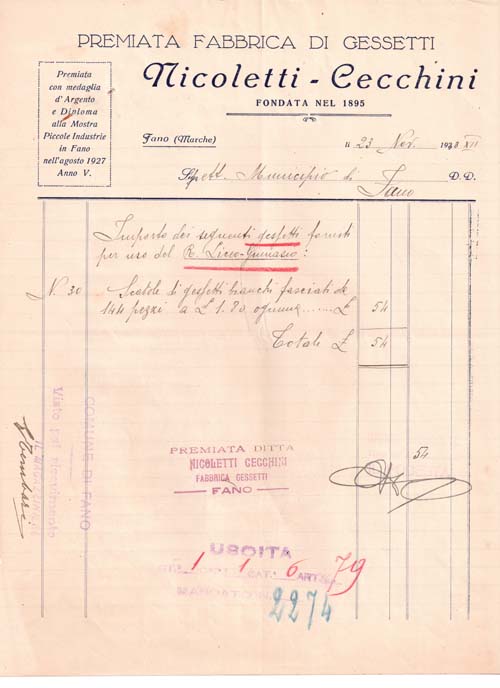 PREMIATA FABBRICA DI GESSETTI
Nicoletti - Cecchini
FONDATA NEL 1895
Premiata
con medaglia
d'Argento
e Diploma
alla Mostra
Piccole Industrie
in Fano
nell'agosto 1927
Anno V.
Fano (Marche)
li 23 Nov. 1938 XVII
Spett. Municipio di Fano D. D.
Importo dei seguenti gessetti forniti
per uso del R. Liceo-Ginnasio:
N. 30 Scatole di gessetti bianchi fasciati da
144 pezzi a £ 1.80 ognuna ...... £ 54
Totale £ 54
54
COMUNE DI FANO
Visto pel ricevimento
IL
PREMIATA DITTA
NICOLETTI CECCHINI
FABBRICA GESSETTI
FANO
USCITA
1 1 6 79
ART.
MANDATO
2274